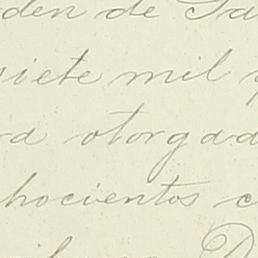 rden de Sa
siete mil y
ra otorgad
hocientos c